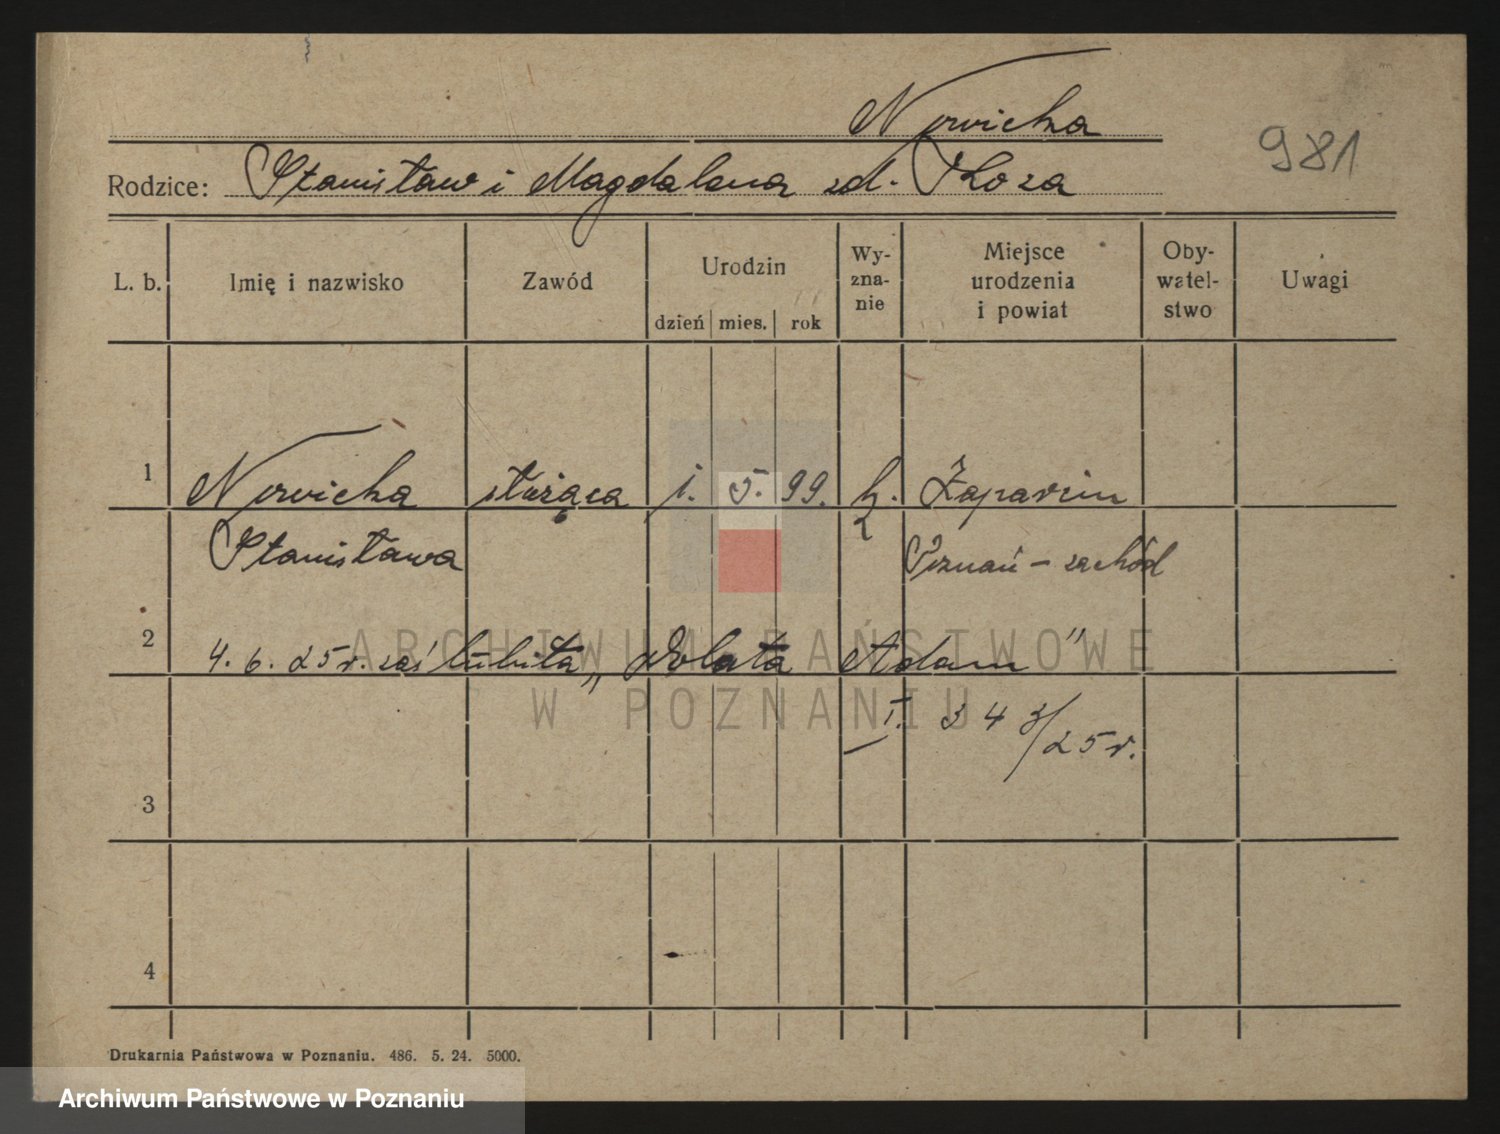 Nowicka
981
Rodzice: Stanisław i Magdalena zd. Koza
L. b. Imię i nazwisko Zawód Urodzin dzień mies. rok Wy-zna-nie Miejsce urodzenia i powiat Oby-watel-stwo Uwagi
1 Nowicka służąca 1. 5. 99. k.
Stanisława Poznań - zachód
2 4. 6. 25 r. zaślubiła „Wolata Adam"
I. 343/25 r.
3
4
Drukarnia Państwowa w Poznaniu. 486. 5. 24. 5000.
ARCHIWUM PAŃSTWOWE
W POZNANIU
Archiwum Państwowe w Poznaniu